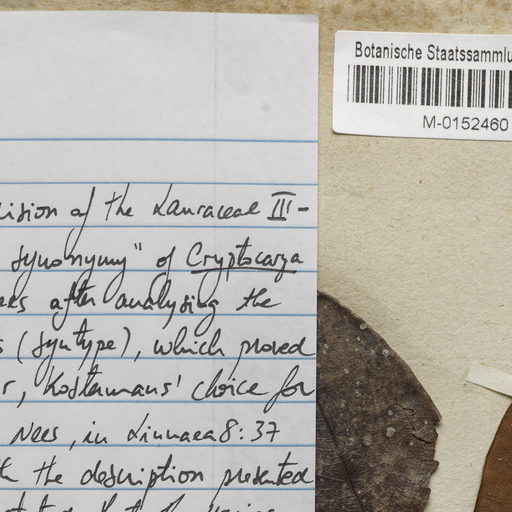 Botanische Staatssammlu
M-0152460
ision of the Lauraceae III -
synonymy" of Cryptocarya
after analysing the
(syntype), which proved
r, Kostermans' choice for
Nees, in Linnaea 8: 37
the description presented